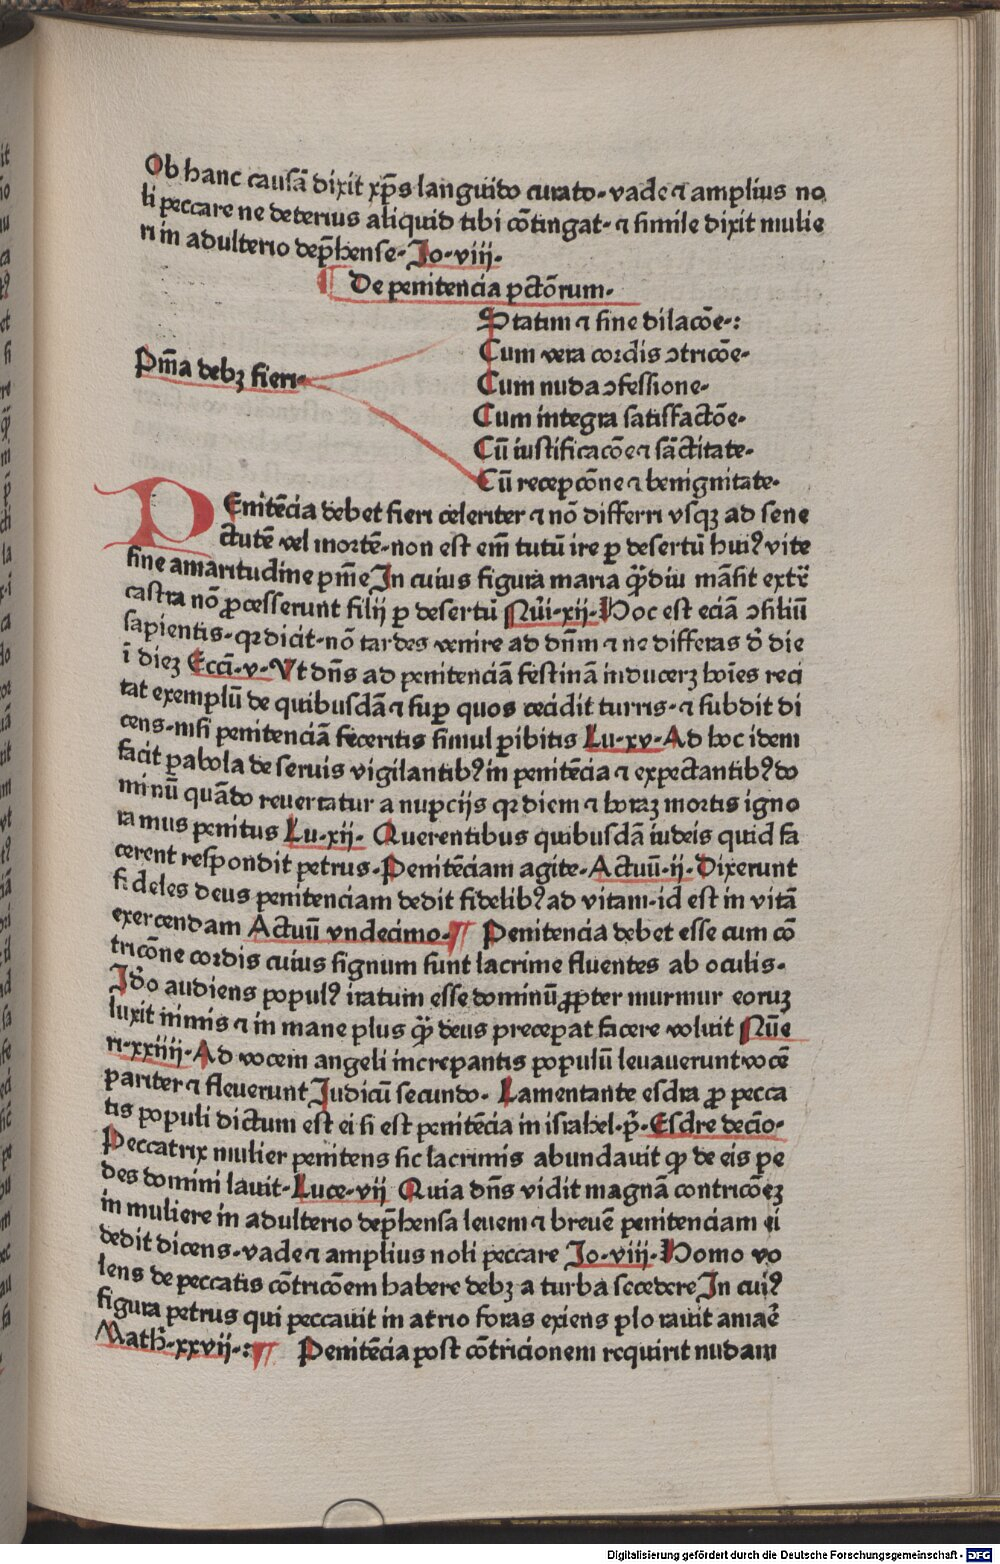 Ob hanc causã dixit xp̃s languido curato· vade ⁊ amplius no
li peccare ne deterius aliquid tibi cõtingat· ⁊ simile dixit mulie
ri in adulterio dep̃hense· Io·viij·
¶ De penitencia pctõrum·
Statim ⁊ sine dilacõe·:
Cum vera cordis ↄtricõe·
Pñia debꝫ fieri·
Cum nuda ↄfessione·
Cum integra satisfactõe·
Cũ iustificacõe ⁊ sãctitate·
Cũ recepcõne ⁊ benignitate·
PEnitẽcia debet fieri celeriter ⁊ nõ differri vsqꝫ ad sene
ctutẽ vel mortẽ· non est em̃ tutũ ire ꝑ desertũ huiꝰ vite
sine amaritudine pñie In cuius figura maria q̃ȝdiu mãsit extᷓ
castra nõ ꝓcesserunt filij ꝑ desertũ Nũi·xij· Hoc est eciã ↄsiliũ
sapientis· qꝛ dicit· nõ tardes venire ad dñm ⁊ ne differas d̾ die
ĩ dieȝ Eccĩ·v· Vt dñs ad penitenciã festinã inducerꝫ hoĩes reci
tat exemplũ de quibusdã ⁊ suꝑ quos cecidit turris· ⁊ subdit di
cens· nisi penitenciã feceritis simul ꝑibitis Lu·xv· Ad hoc idem
facit ꝑabola de seruis vigilantibꝰ in penitẽcia ⁊ expectantibꝰ do
minũ quãdo reuertatur a nupcijs qꝛ diem ⁊ horaȝ mortis igno
ramus penitus Lu·xij· Querentibus quibusdã iudeis quid fa
cerent respondit petrus· Penitẽciam agite· Actuũ·ij· Dixerunt
fideles deus penitenciam dedit fidelibꝰ ad vitam· id est in vitã
exercendam Actuũ vndecimo· ¶ Penitencia debet esse cum cõ
tricõne cordis cuius signum sunt lacrime fluentes ab oculis·
Id̾o audiens populꝰ iratum esse dominũ ꝓpter murmur eoruȝ
luxit nimis ⁊ in mane plus q̃ȝ deus preceperat facere voluit Nũe
ri·xxiiij· Ad vocem angeli increpantis populũ leuauerunt vocẽ
pariter ⁊ fleuerunt Iudicũ secundo· Lamentante esdra ꝓ pecca
tis populi dictum est ei si est penitẽcia in israhel· p̾· Esdre decĩo·
Peccatrix mulier penitens sic lacrimis abundauit ꝙ de eis pe
des domini lauit· Luce·vij Quia dñs vidit magnã contricõeȝ
in muliere in adulterio dep̃hensa leuem ⁊ breuẽ penitenciam ei
dedit dicens· vade ⁊ amplius noli peccare Io·viij· Homo vo
lens de peccatis cõtricõem habere debꝫ a turba secedere In cuiꝰ
figura petrus qui peccauit in atrio foras exiens plorauit amaẽ
Math̾·xxvij·: ¶ Penitẽcia post cõtricionem requirit nudam
Digitalisierung gefördert durch die Deutsche Forschungsgemeinschaft · DFG